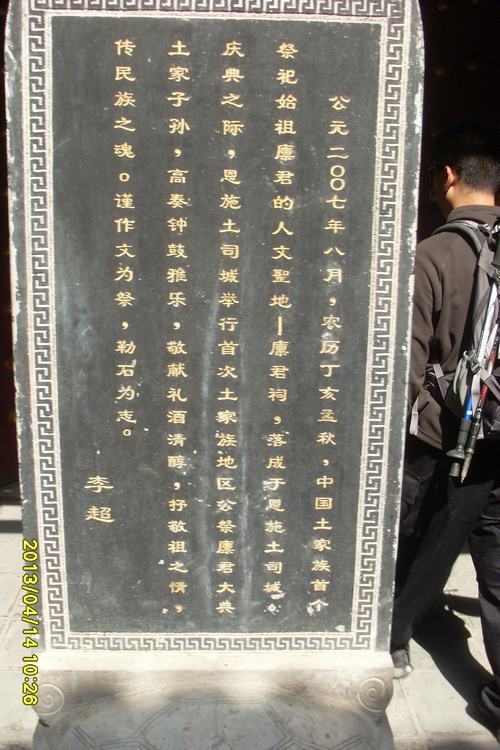 公元二〇〇七年八月，农历丁亥孟秋，中国土家族首个
祭祀始祖廪君的人文聖地—廪君祠，落成于恩施土司城。
庆典之际，恩施土司城举行首次土家族地区公祭廪君大典
土家子孙，高奏钟鼓雅乐，敬献礼酒清醇，抒敬祖之情，
传民族之魂。谨作文为祭，勒石为志。
李超
2013/04/14 10:26